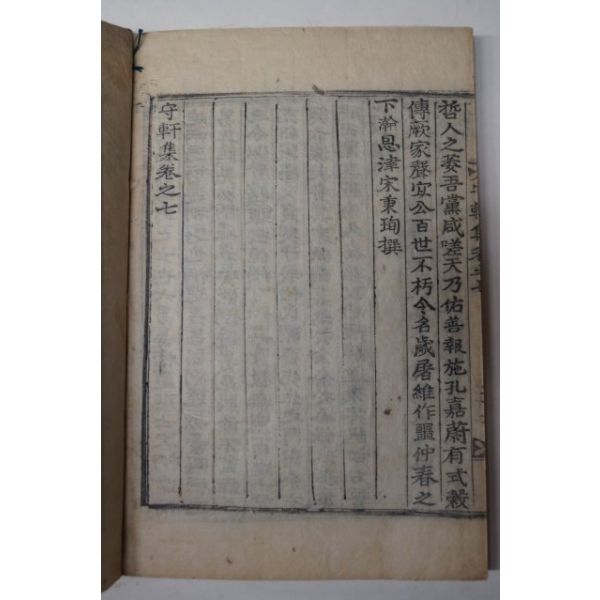 哲人之萎吾黨咸嗟天乃佑善報施孔嘉蔚有式穀
傳厥家聲安公百世不朽令名歲屠維作噩仲春之
下瀚恩津宋秉珣撰
守軒集卷之七